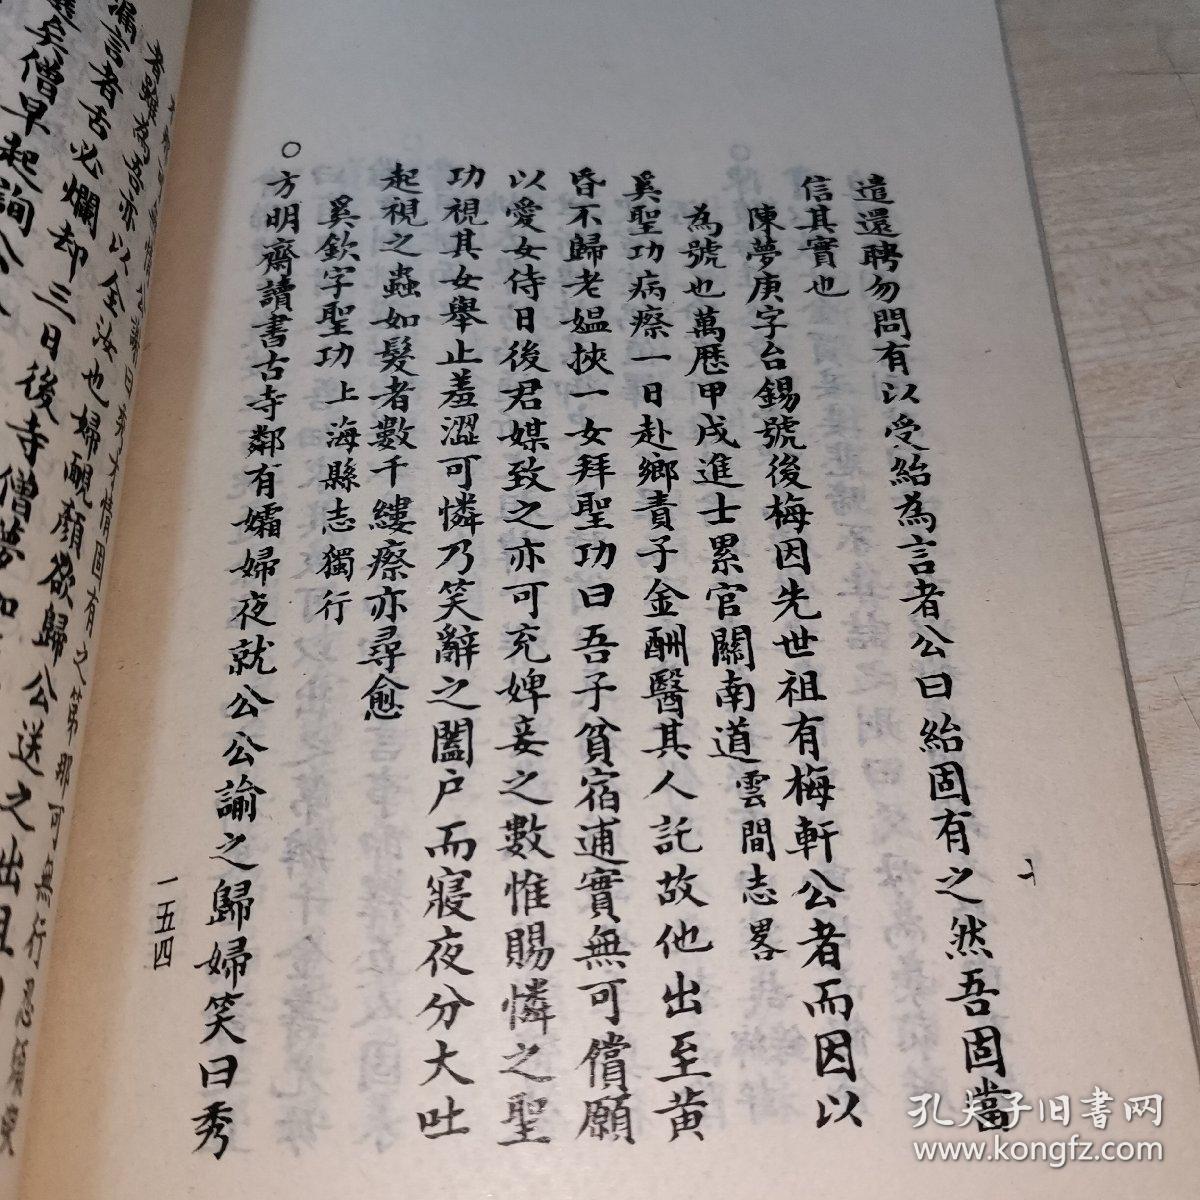 遣還聘勿問有以受紿為言者公曰紿固有之然吾固當
信其實也
陳夢庚字台錫號後梅因先世祖有梅軒公者而因以
為號也萬歷甲戌進士累官關南道雲間志畧
奚聖功病瘵一日赴鄉責子金酬醫其人託故他出至黃
昏不歸老媪挾一女拜聖功曰吾子貧宿逋實無可償願
以愛女侍日後君媒致之亦可充婢妾之數惟賜憐之聖
功視其女舉止羞澀可憐乃笑辭之闔户而寢夜分大吐
起視之蟲如髮者數千縷瘵亦尋愈
奚欽字聖功上海縣志獨行
○方明齋讀書古寺鄰有孀婦夜就公公諭之歸婦笑曰秀
一五四
者雖為吾亦以全汝也婦靦顏欲歸公送之出且
漏言者舌必爛却三日後寺僧夢
矣僧早起詢
孔夫子旧书网
www.kongfz.com